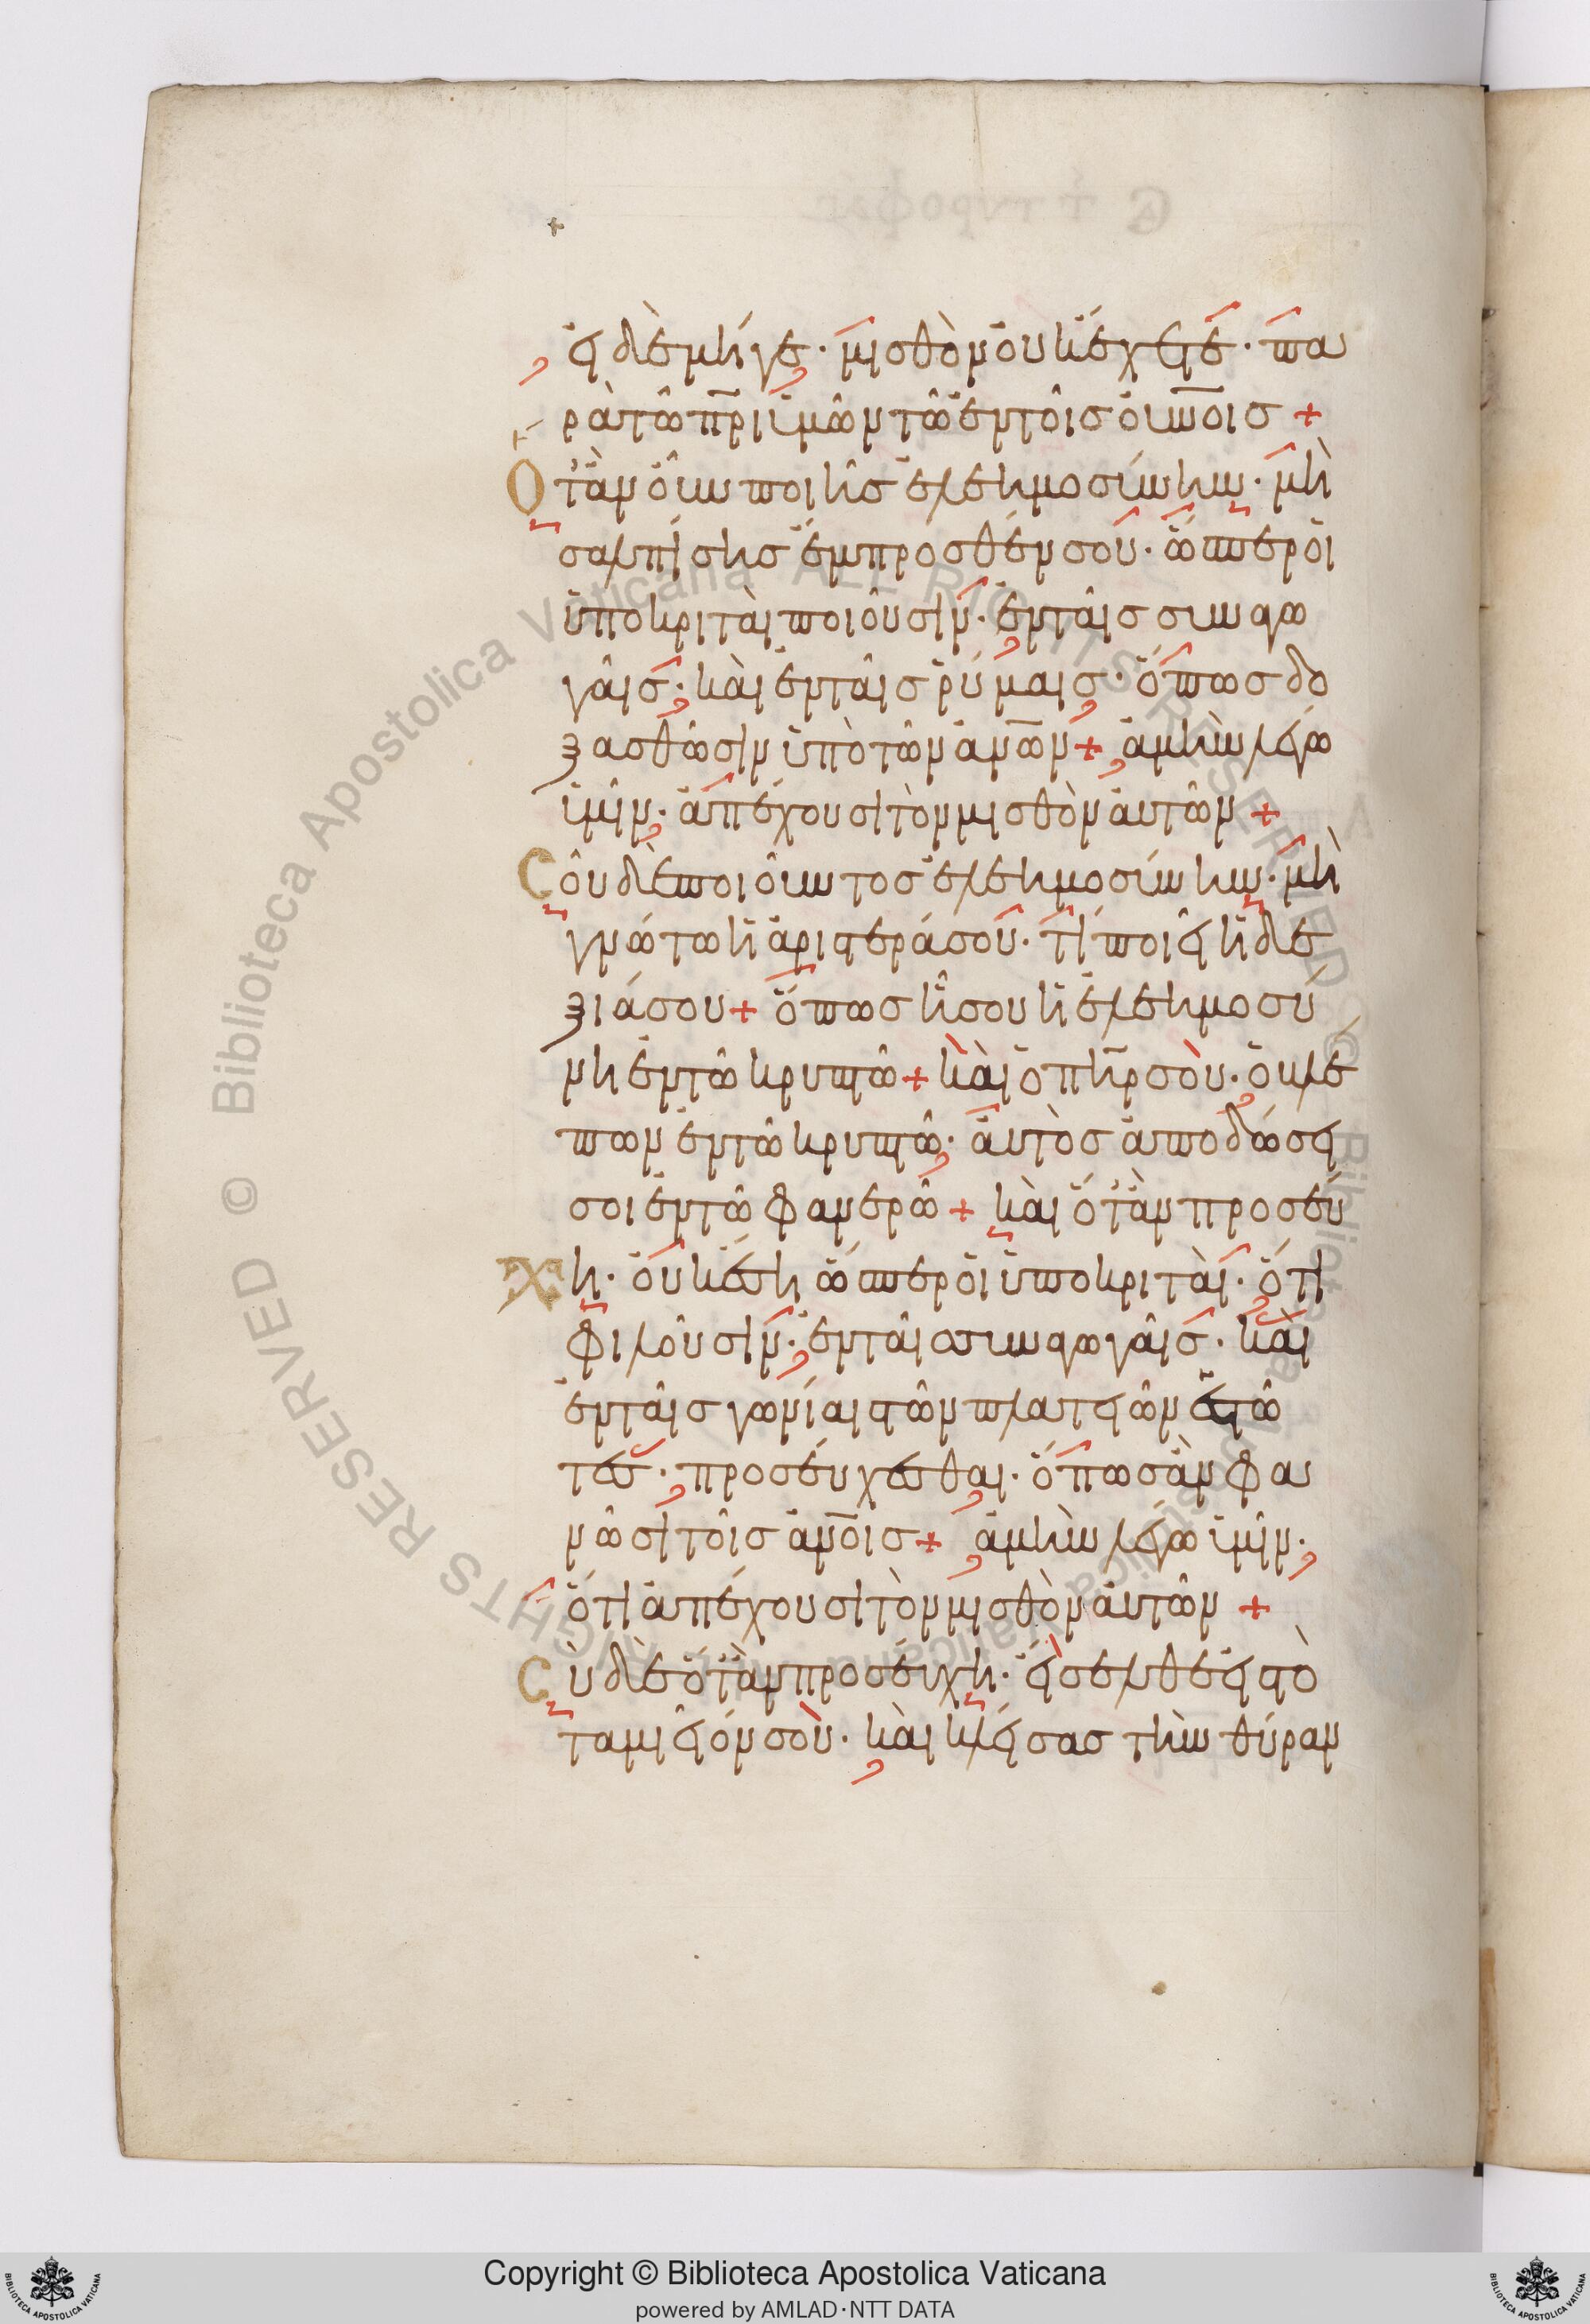 εἰ δὲ μήγε· μισθὸν οὐκ ἔχετε· πα
ρὰ τῶ πρι ὑμῶν τῶ ἐν τοῖς οὐνοις +
Ὅταν οὖν ποιῆς ἐλεημοσύνην· μὴ
σαλπίσης ἔμπροσθέν σου· ὥσπερ οἱ
ὑποκριταὶ ποιοῦσιν· ἐν ταῖς συναγω
γαῖς· καὶ ἐν ταῖς ῥύμαις· ὅπως δο
ξασθῶσιν ὑπὸ τῶν ανων + ἀμὴν λέγω
ὑμῖν· ἀπέχουσι τὸν μισθὸν αὐτῶν +
Σοῦ δὲ ποιοῦντος ἐλεημοσύνην· μὴ
γνώτω ἡ ἀριστερά σου· τί ποιεῖ ἡ δε
ξιά σου + ὅπως ἦ σου ἡ ἐλεημοσύ
νη ἐν τῶ κρυπτῶ + καὶ ὁ πηρ σου· ὁ βλέ
πων ἐν τῶ κρυπτῶ· αὐτὸς ἀποδώσει
σοι ἐν τῶ φανερῶ + καὶ ὅταν προσεύ
χη· οὐκ ἔση ὥσπερ οἱ ὑποκριταί· ὅτι
φιλοῦσιν· ἐν ταῖς συναγωγαῖς· καὶ
ἐν ταῖς γωνίαις τῶν πλατειῶν ἑστῶ
τες· προσεύχεσθαι· ὅπως ἂν φα
νῶσι τοῖς ανοις + ἀμὴν λέγω ὑμῖν·
ὅτι ἀπέχουσι τὸν μισθὸν αὐτῶν +
Σὺ δὲ ὅταν προσεύχη· εἴσελθε εἰς τὸ
ταμιεῖόν σου· καὶ κλείσας τὴν θύραν
Copyright © Biblioteca Apostolica Vaticana
powered by AMLAD·NTT DATA